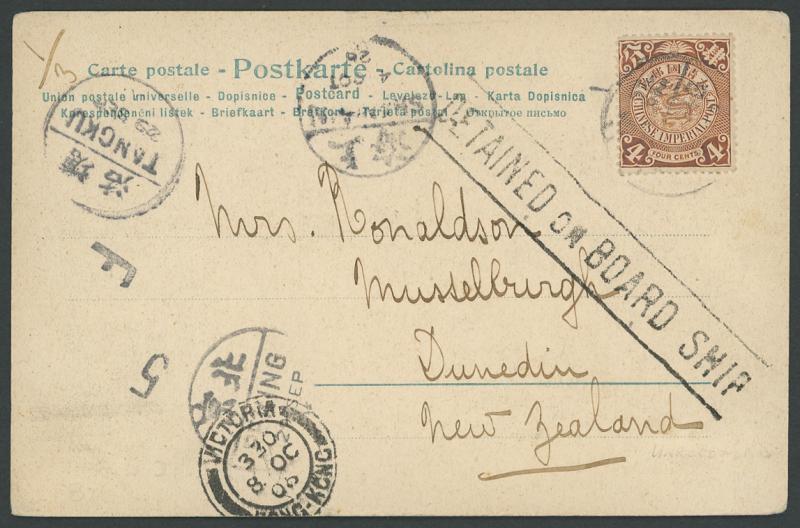 1/3
Carte postale - Postkarte - Cartolina postale
Union postale universelle - Dopisnice - Postcard - Levelező-Lap - Karta Dopisnica
Korespondenční lístek - Briefkaart - Brefkort - Tarjeta postal - Открытое письмо
CHINESE IMPERIAL POST
4 FOUR CENTS 4
TANGKU
塘沽
29
DETAINED ON BOARD SHIP
Mrs. Ronaldson
Musselburgh
Dunedin
New Zealand
F
5
北京
SEP
VICTORIA
3 30
8 OC
06
HONG-KONG